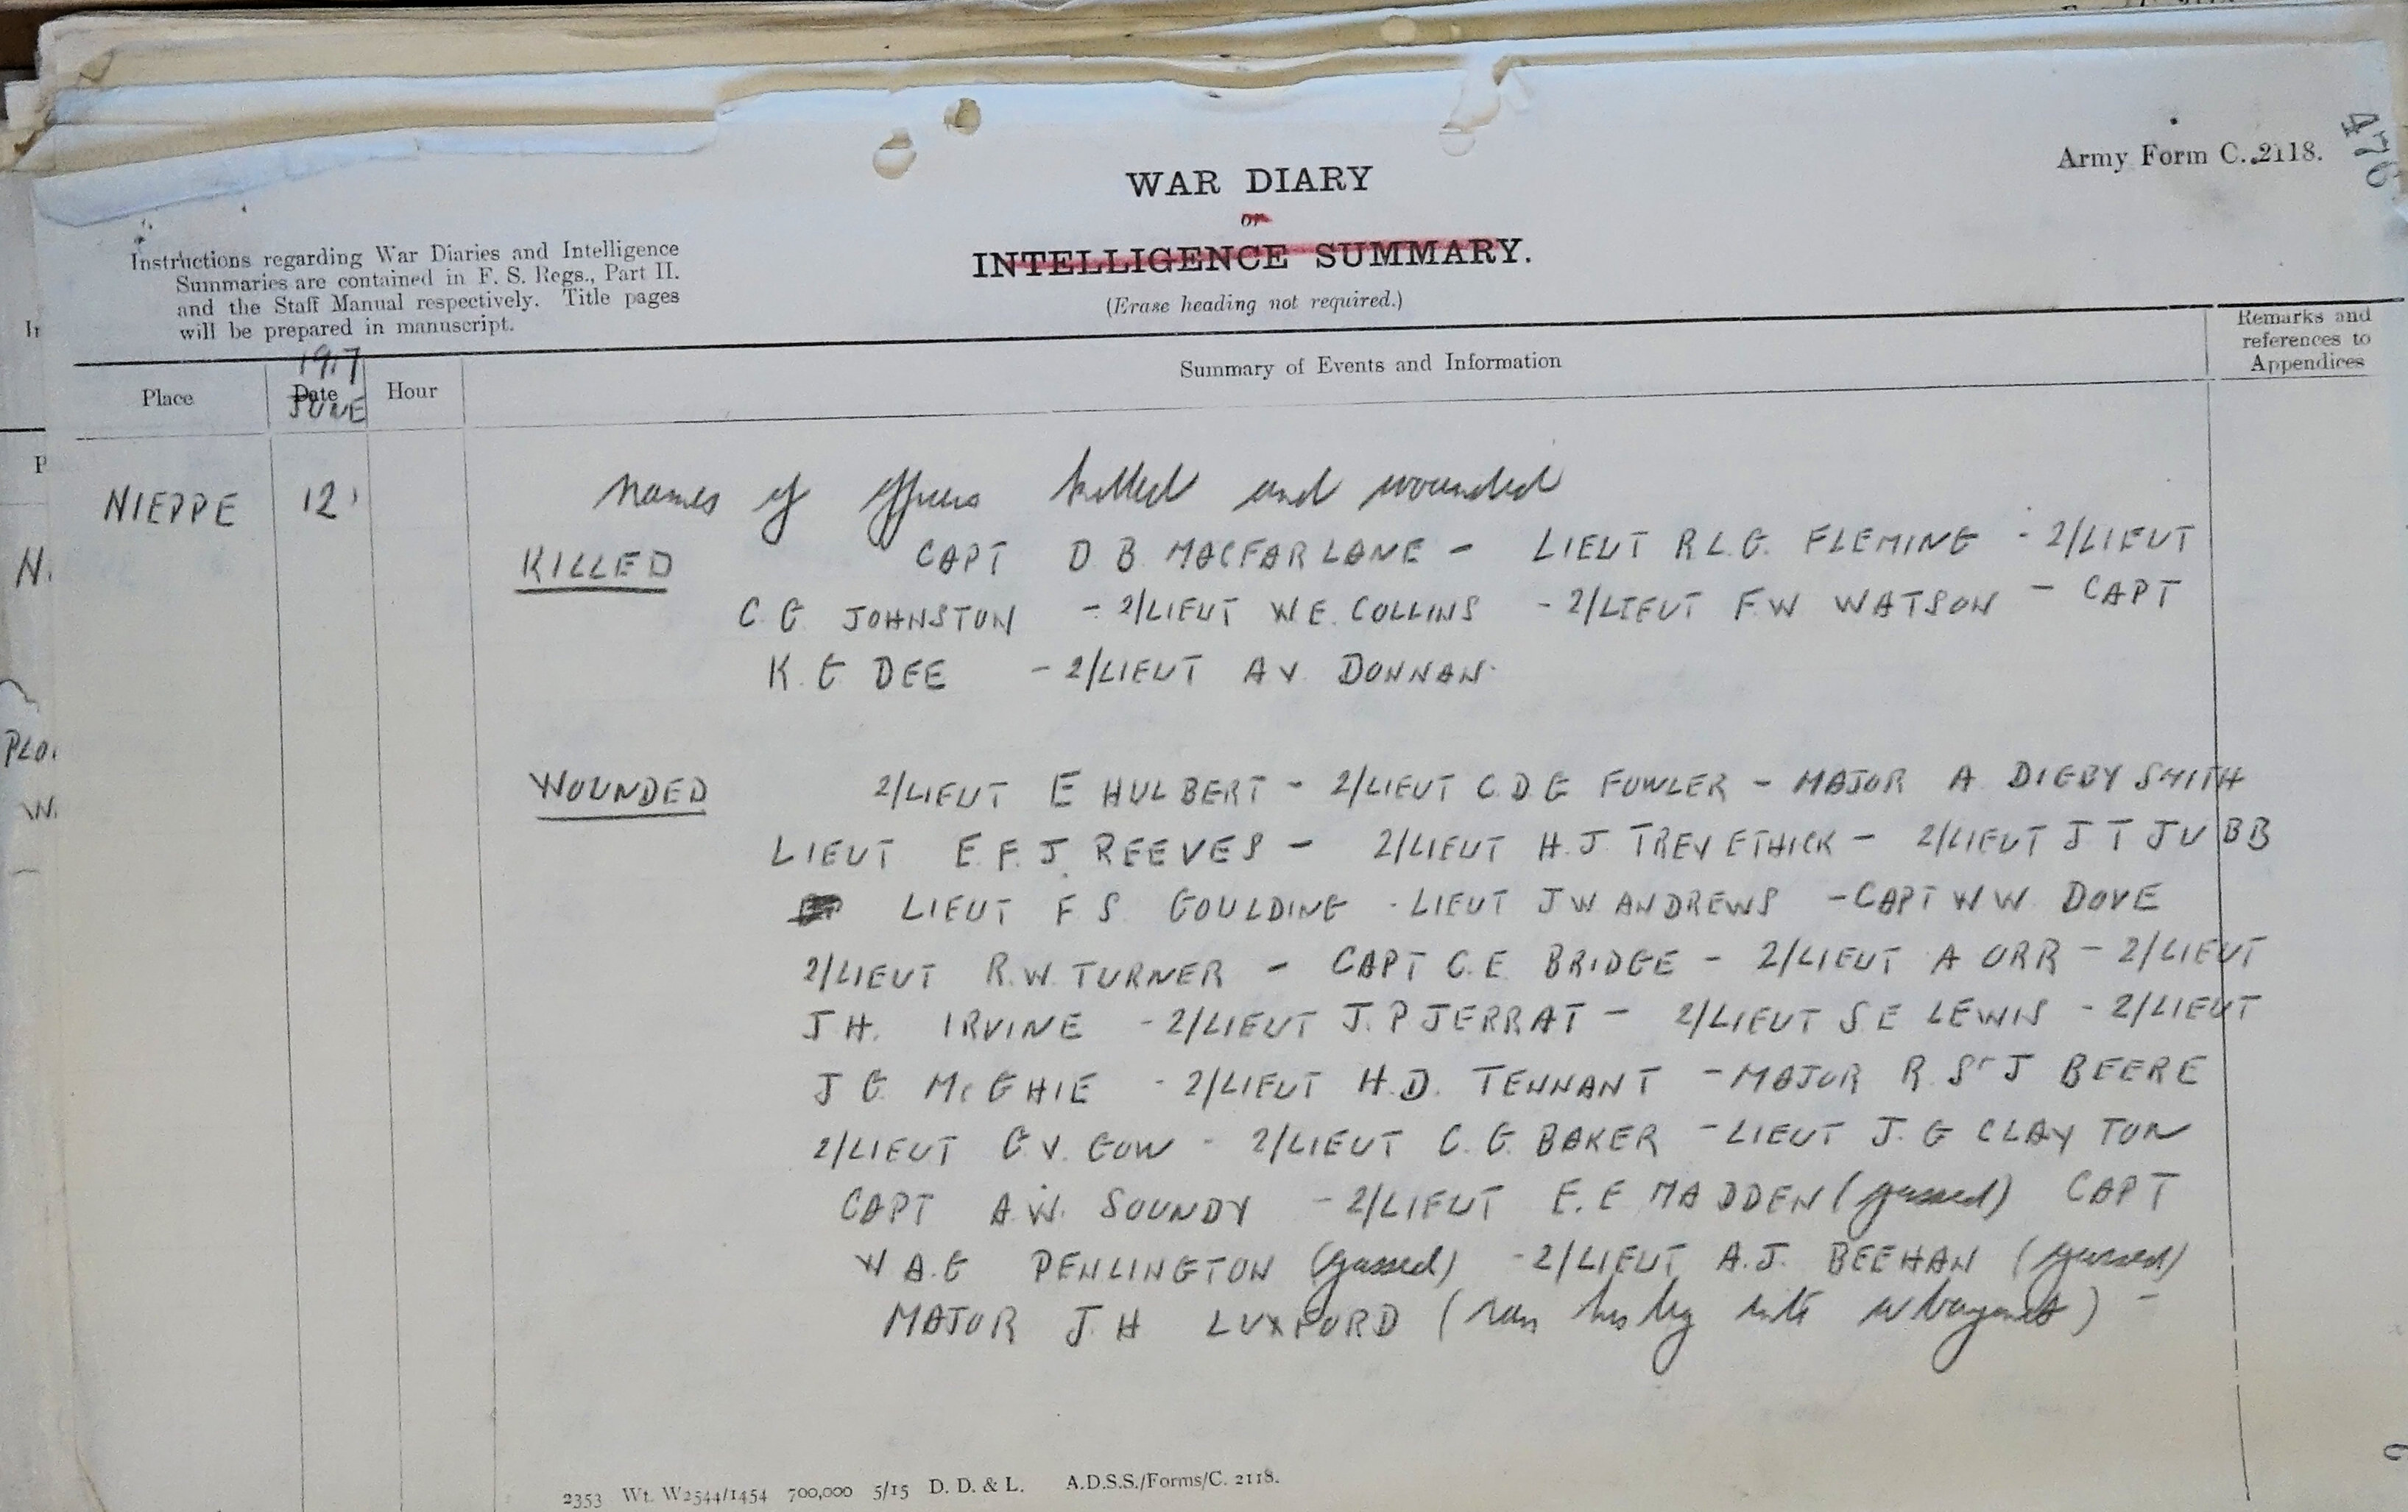 Army Form C. 2118.
476
WAR DIARY
or
INTELLIGENCE SUMMARY.
(Erase heading not required.)
Instructions regarding War Diaries and Intelligence
Summaries are contained in F. S. Regs., Part II.
and the Staff Manual respectively. Title pages
will be prepared in manuscript.
Place
1917
Date
JUNE
Hour
Summary of Events and Information
Remarks and
references to
Appendices
NIEPPE 12 Names of officers killed and wounded
KILLED CAPT D B MACFARLANE - LIEUT R L.G. FLEMING - 2/LIEUT
C G JOHNSTON - 2/LIEUT W E. COLLINS - 2/LIEUT F.W WATSON - CAPT
K. G DEE - 2/LIEUT A V. DONNAN.
WOUNDED 2/LIEUT E HULBERT - 2/LIEUT C.D.G FOWLER - MAJOR A DIGBY SMITH
LIEUT E.F.J. REEVES - 2/LIEUT H.J. TREVETHICK - 2/LIEUT J T JUBB
LIEUT F S GOULDING - LIEUT J W ANDREWS - CAPT W W DOVE
2/LIEUT R.W. TURNER - CAPT C.E. BRIDGE - 2/LIEUT A ORR - 2/LIEUT
J H. IRVINE - 2/LIEUT J.P JERRAT - 2/LIEUT S.E LEWIS - 2/LIEUT
J G McGHIE - 2/LIEUT H.D. TENNANT - MAJOR R. St J BEERE
2/LIEUT G.V. GOW - 2/LIEUT C.G. BAKER - LIEUT J.G CLAYTON
CAPT A.W. SOUNDY - 2/LIEUT E.E MADDEN (gassed) CAPT
W A.G PENLINGTON (gassed) - 2/LIEUT A.J. BEEHAN (gassed)
MAJOR J.H LUXFORD (ran his leg into a bayonet) -
2353 Wt. W2544/1454 700,000 5/15 D. D. & L. A.D.S.S./Forms/C. 2118.